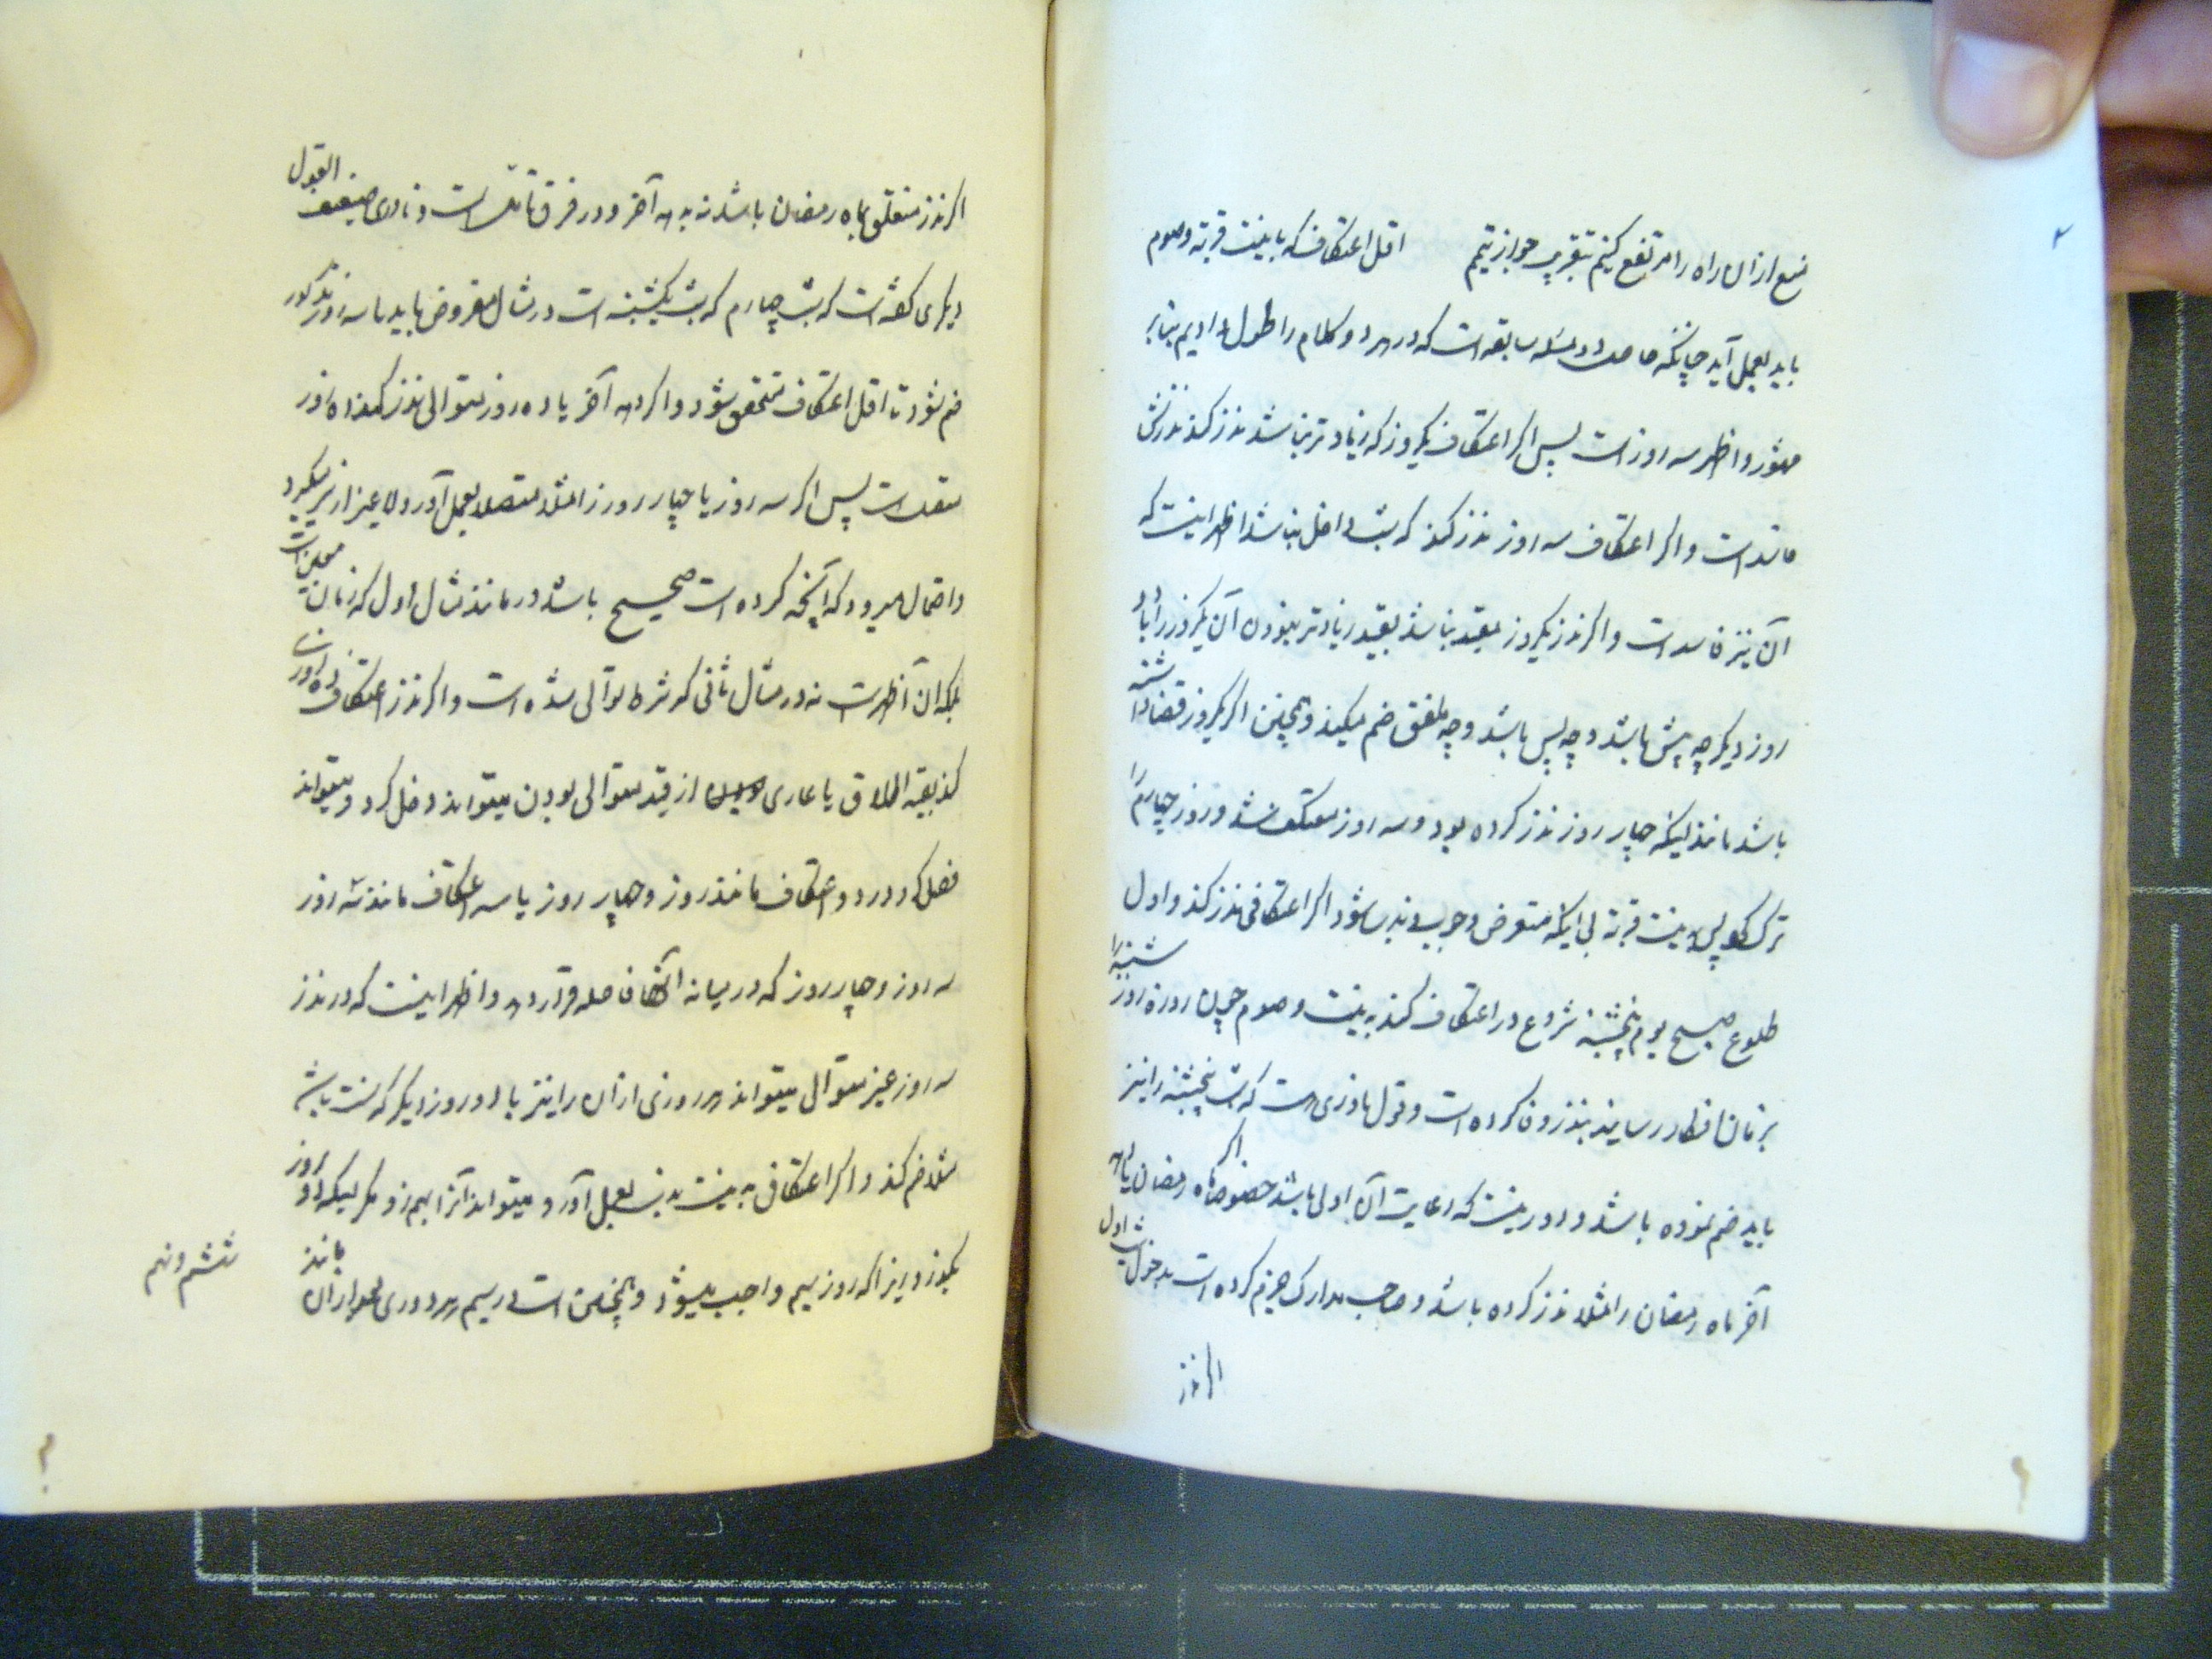 منع ازان راه را مرتفع کنیم بتقریب جواز تیمم اقل اعتکاف که با نیت قربة و صوم
باید بعمل آید چنانکه حاصل دو مسئله سابقه است که در هر دو کلام را طول دادیم بنابر
مشهور و اظهر سه روز است پس اگر اعتکاف یکروز که زیادتر نباشد نذر کند نذرش
فاسد است و اگر اعتکاف سه روز نذر کند که شب داخل نباشد اظهر اینست که
آن نیز فاسد است و اگر نذر یکروز مقید نباشد بقید زیادتر نبودن آن یکروز را با دو
روز دیگر چه پیش باشد و چه پس باشد و چه ملفق ضم میکند و همچنین اگر یکروز قضا داشته
باشد مانند اینکه چهار روز نذر کرده بود و سه روز معتکف شد و روز چهارم را
ترک کرد پس نیت قربة بی اینکه متعرض وجوب و ندب شود اگر اعتکافی نذر کند و اول
طلوع صبح یوم پنجشنبه شروع در اعتکاف کند به نیت و صوم چون روزه روز شنبه را
بزمان افطار رسانید بنذر وفا کرده است و قول نادری هست که شب پنجشنبه را نیز
باید ضم نموده باشد و دور نیست که رعایت آن اولی باشد خصوصا اگر ماه رمضان یا دهه
آخر ماه رمضان را مثلا نذر کرده باشد و صاحب مدارک جزم کرده است بدخول شب اول
اگر نذر
اگر نذر متعلق بماه رمضان باشد نه بدهه آخر و در فرق تامل است و نادری ضعیف القول
دیگری گفته است که شب چهارم که شب یکشنبه است در مثال مفروض باید با سه روز مذکور
ضم شود تا اقل اعتکاف متحقق شود و اگر دهه آخر یا ده روز متوالی نذر کند ده روز
منعقد است پس اگر سه روز یا چهار روز را مثلا متصلا بعمل آورد و غیر از سر میگیرد
و احتمال میرود که آنچه کرده است صحیح باشد در مانند مثال اول که زمان معین است
بلکه آن اظهر است نه در مثال ثانی که شرط توالی شده است و اگر نذر اعتکاف ده روز
کند بقید اطلاق یا عاری از قید متوالی بودن میتواند وصل کرد و میتواند
فصل کرد در دو اعتکاف مانند روز و چهار روز یا سه اعتکاف مانند سه روز
سه روز و چهار روز که در میانه آنها فاصله قرار دهد و اظهر اینست که در نذر
سه روز غیر متوالی میتواند هر روزی ازان را نیز با دو روز دیگر که سنت باشد
مثلا ضم کند و اگر اعتکافی به نیت ندب بعمل آورد میتواند آنرا بهم زد مگر اینکه دو روز
بگذرد زیرا که روز سیم واجب میشود و همچنین است در سیم هر دوری بعد ازان مانند
ششم و نهم